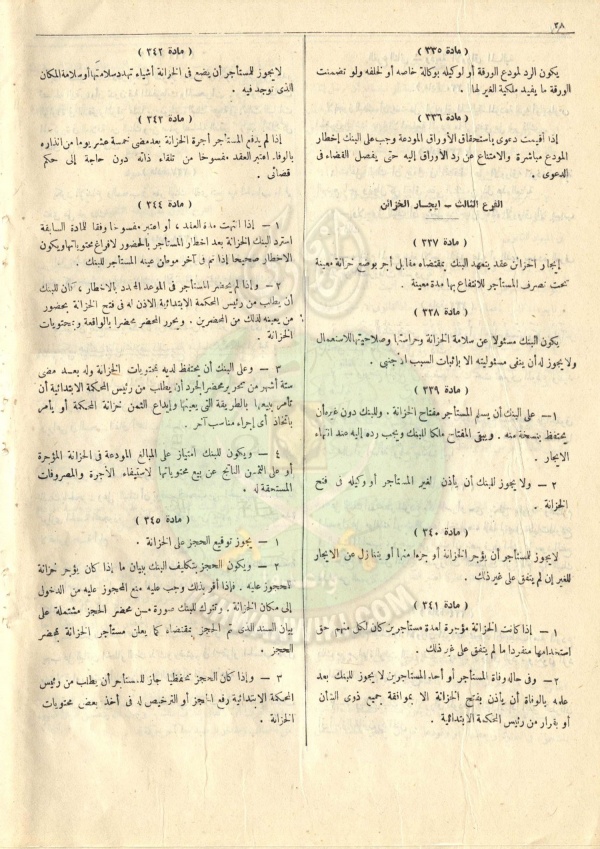 ٣٨
( مادة ٣٣٥ )
يكون الرد لمودع الورقة أو لوكيله بوكالة خاصه أو لخلفه ولو تضمنت
الورقة ما يفيد ملكية الغير لها .
( مادة ٣٣٦ )
إذا أقيمت دعوى باستحقاق الأوراق المودعة وجب على البنك إخطار
المودع مباشرة والامتناع عن رد الأوراق إليه حتى يفصل القضاء فى
الدعوى .
الفرع الثالث - ايجار الخزائن
( مادة ٣٣٧ )
إيجار الخزائن عقد يتعهد البنك بمقتضاه مقابل أجر بوضع خزانة معينة
تحت تصرف المستأجر للانتفاع بها مدة معينة .
( مادة ٣٣٨ )
يكون البنك مسئولا عن سلامة الخزانة وحراستها وصلاحيتها للاستعمال
ولا يجوز له أن ينفى مسئوليته الا بإثبات السبب الأجنبى .
( مادة ٣٣٩ )
١ - على البنك أن يسلم المستأجر مفتاح الخزانة . وللبنك دون غيره أن
يحتفظ بنسخة منه . ويبقى المفتاح ملكا للبنك ويجب رده إليه عند انتهاء
الايجار .
٢ - ولا يجوز للبنك أن يأذن لغير المستأجر أو وكيله فى فتح
الخزانة .
( مادة ٣٤٠ )
لا يجوز للمستأجر أن يؤجر الخزانة أو جزءا منها أو يتنازل عن الايجار
للغير إن لم يتفق على غير ذلك .
( مادة ٣٤١ )
١ - إذا كانت الخزانة مؤجرة لعدة مستأجرين كان لكل منهم حق
استخدامها منفردا ما لم يتفق على غير ذلك .
٢ - وفى حالة وفاة المستأجر أو أحد المستأجرين لا يجوز للبنك بعد
علمه بالوفاة أن يأذن بفتح الخزانة الا بموافقة جميع ذوى الشأن
أو بقرار من رئيس المحكمة الابتدائية .
( مادة ٣٤٢ )
لا يجوز للمستأجر أن يضع فى الخزانة أشياء تهدد سلامتها أو سلامة المكان
الذى توجد فيه .
( مادة ٣٤٣ )
إذا لم يدفع المستأجر أجرة الخزانة بعد مضى خمسة عشر يوما من انذاره
بالوفاء اعتبر العقد مفسوخا من تلقاء ذاته دون حاجة إلى حكم
قضائى .
( مادة ٣٤٤ )
١ - إذا انتهت مدة العقد ، أو اعتبر مفسوخا وفقا للمادة السابقة
استرد البنك الخزانة بعد اخطار المستأجر بالحضور لافراغ محتوياتها ويكون
الاخطار صحيحا إذا تم فى آخر موطن عينه المستأجر للبنك .
٢ - وإذا لم يحضر المستأجر فى الموعد المحدد بالاخطار ، كان للبنك
أن يطلب من رئيس المحكمة الابتدائية الاذن له فى فتح الخزانة بحضور
من يعينه لذلك من المحضرين . ويحرر المحضر محضرا بالواقعة وبمحتويات
الخزانة .
٣ - وعلى البنك أن يحتفظ لديه بمحتويات الخزانة وله بعد مضى
ستة أشهر من تحرير محضر الجرد أن يطلب من رئيس المحكمة الابتدائية أن
تأمر ببيعها بالطريقة التى يعينها وإيداع الثمن خزانة المحكمة أو يأمر
باتخاذ أى إجراء مناسب آخر .
٤ - ويكون للبنك امتياز على المبالغ المودعة فى الخزانة المؤجرة
أو على الثمن الناتج عن بيع محتوياتها لاستيفاء الأجرة والمصروفات
المستحقة له .
( مادة ٣٤٥ )
١ - يجوز توقيع الحجز على الخزانة .
٢ - ويكون الحجز بتكليف البنك ببيان ما إذا كان يؤجر خزانة
للمحجوز عليه . فإذا أقر بذلك وجب عليه منع المحجوز عليه من الدخول
إلى مكان الخزانة . وتترك للبنك صورة من محضر الحجز مشتملة على
بيان السند الذى تم الحجز بمقتضاه كما يعلن مستأجر الخزانة بمحضر
الحجز .
٣ - وإذا كان الحجز تحفظيا جاز للمستأجر أن يطلب من رئيس
المحكمة الابتدائية رفع الحجز أو الترخيص له فى أخذ بعض محتويات
الخزانة .